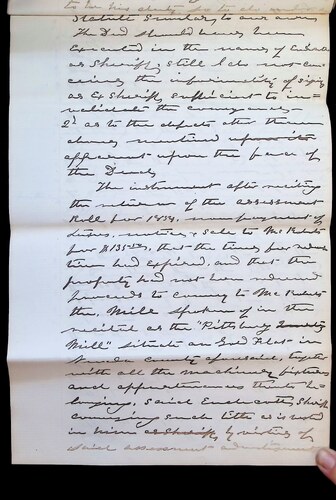 Statute Similar to our own
The Deed should have been
Executed in the name of
as Sheriff, still I do not con-
ceive the informality of signing
as Ex Sheriff sufficient to in-
validate the conveyance
2d as to the defects other than
above mentioned
apparent upon the face of
the Deed
The instrument after reciting
the return of the assessment
Roll for 1858, non payment of
taxes, notice & Sale to Mr Roberts
for $135, that the time for redemp
tion had expired, and that the
property had not been redeemed
proceeds to convey to Mr Roberts
the Mill spoken of in the
recital as the "Pittsburg
Mill" situate on Gold Flat in
Nevada County aforesaid, together
with all the machinery fixtures
and appurtenances thereto be-
longing, said Sheriff
conveying such title as is vest
in him as Sheriff by virtue of
said assessment